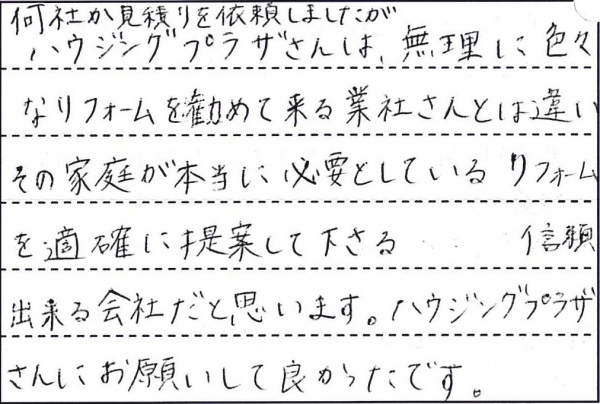 何社か見積りを依頼しましたが
ハウジングプラザさんは、無理に色々
なリフォームを勧めて来る業社さんとは違い
その家庭が本当に必要としているリフォーム
を適確に提案して下さる 信頼
出来る会社だと思います。ハウジングプラザ
さんにお願いして良かったです。